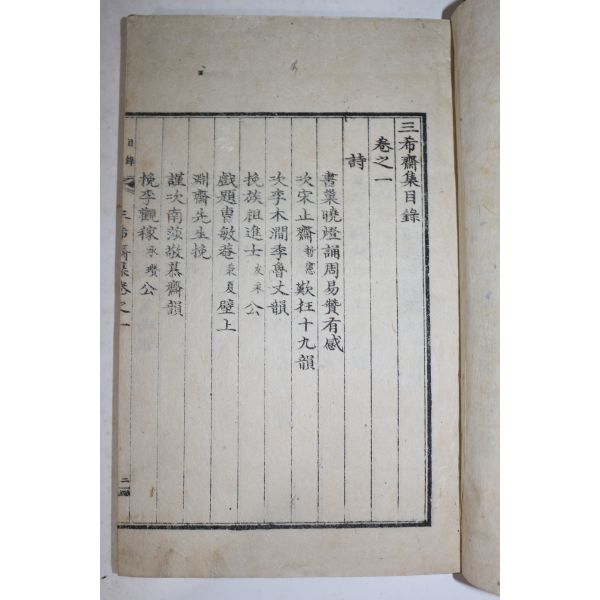 三希齋集目錄
卷之一
詩
書巢曉燈誦周易贊有感
次宋止齋哲憲歎枉十九韻
次李木澗季魯丈韻
挽族祖進士友采公
戲題曺敏菴秉夏壁上
淵齋先生挽
謹次南蒞敬慕齋韻
挽李觀稼承瓚公
目錄
三希齋集卷之一
二